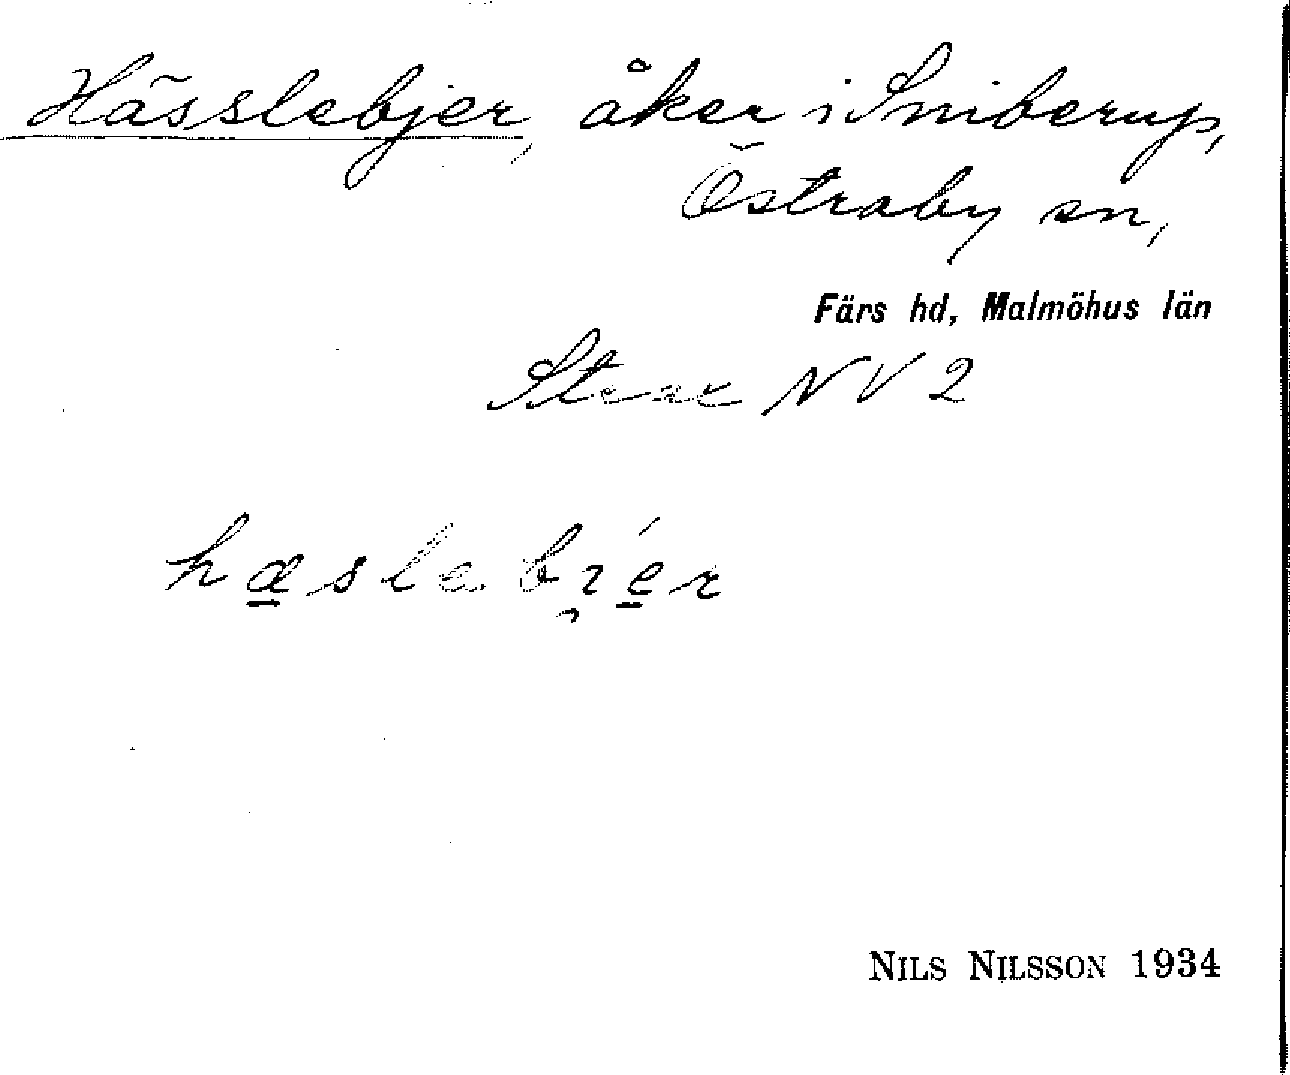 Hässlebjer, åker i Sniberup,
Östraby sn,
Färs hd, Malmöhus län
Strax NV 2
hæslebi̯ér
NILS NILSSON 1934